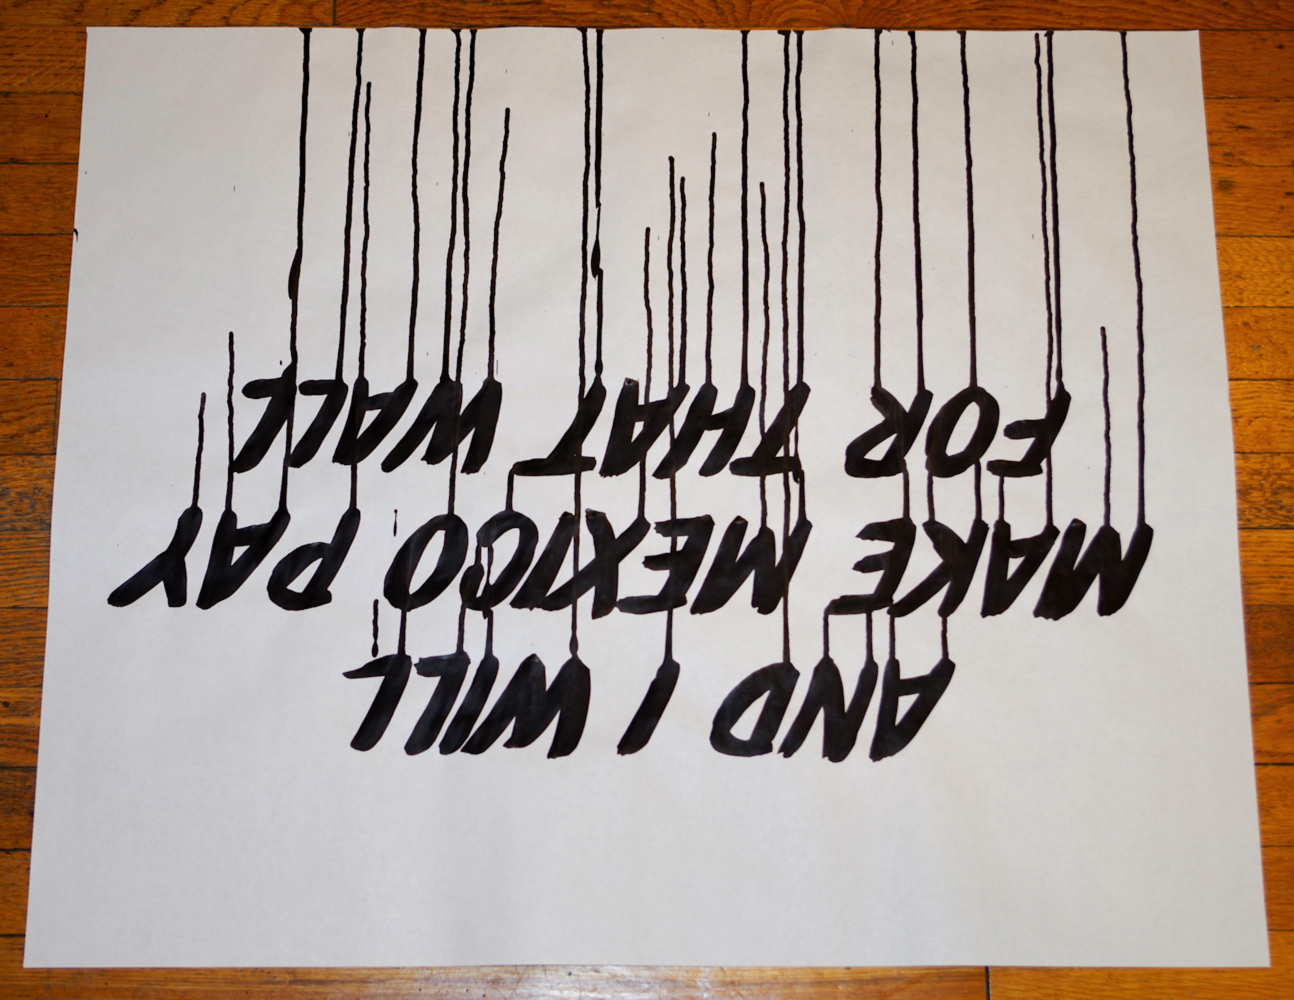 AND I WILL
MAKE MEXICO PAY
FOR THAT WALL